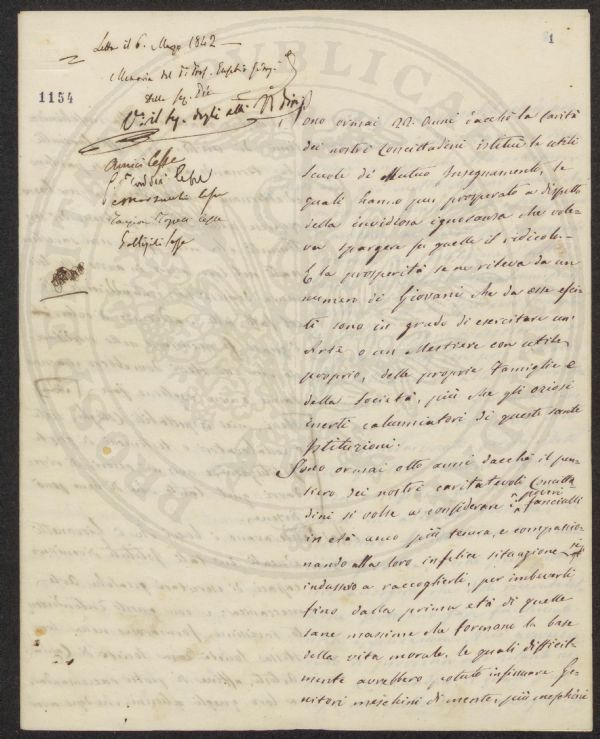 1
Letta il 6. Marzo 1842 —
Memoria del Sr. Prof. Eusebio
Della Seg. Die
1154
Vo. il Seg. degli atti
Amici lesse
lesse
lesse
lesse
lesse
Sono ormai 22. Anni dacchè la Carità
dei nostri Concittadini istituì le utili
Scuole di Mutuo Insegnamento, le
quali hanno pur prosperato a dispetto
della invidiosa ignoranza che vole-
va spargere su quelle il ridicolo.
E la prosperità se ne rileva da un
numero di Giovani che da esse esci-
ti sono in grado di esercitare un'
Arte o un Mestiere con utile
proprio, delle proprie Famiglie e
della Società, più che gli oziosi
inerti calunniatori di queste sante
Istituzioni.
Sono ormai otto anni dacchè il pen-
siero dei nostri caritatevoli Concitta-
dini si volse a considerare i poveri fanciulli
in età anco più tenera, e compassio-
nando alla loro infelice situazione si
indussero a raccoglierli, per imbeverli
fino dalla prima età di quelle
sane massime che formano la base
della vita morale, le quali difficil-
mente avrebbero potuto insinuare Ge-
nitori meschini di mente, più meschini